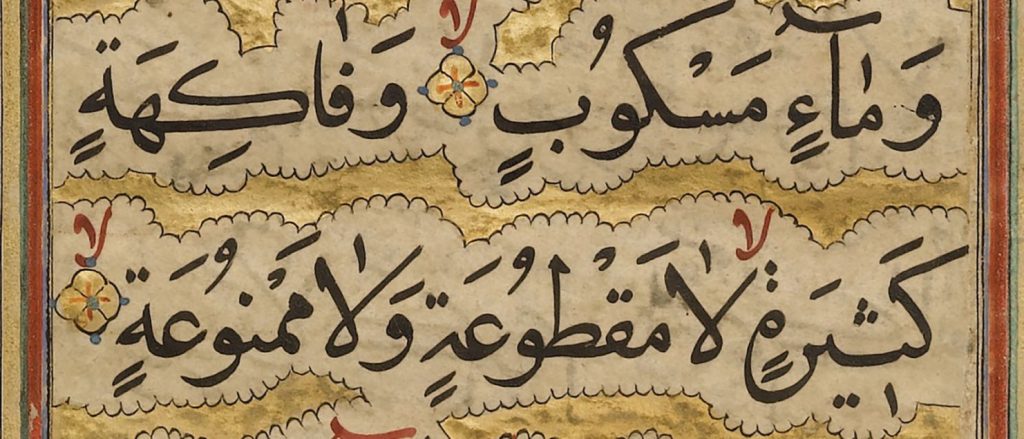 وَمَآءٍ مَسْكُوبٍ ۙ وَفَاكِهَةٍ
كَثيرَةٍ ۙ لَا مَقْطُوعَةٍ وَلَا مَمْنُوعَةٍ ۙ